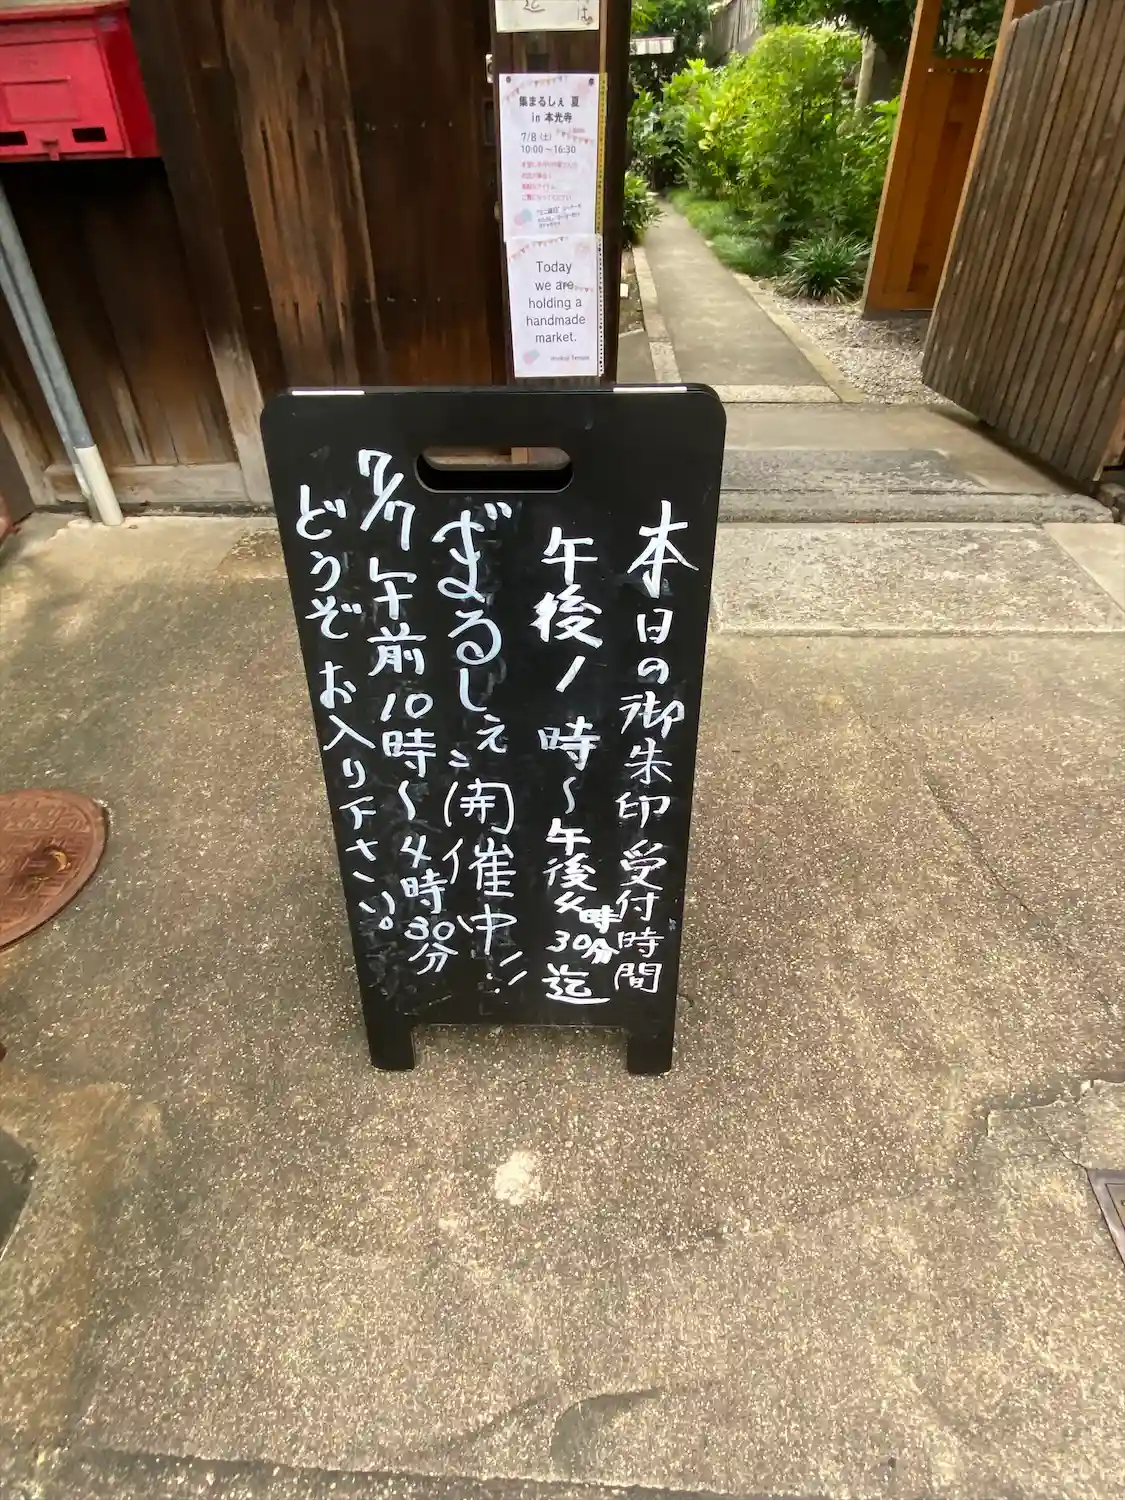 集まるしぇ 夏
in 本光寺
7/8 (土)
10:00～16:30
Today
we are
holding a
handmade
market.
本日の御朱印受付時間
午後1時～午後4時30分迄
ざまるしぇ開催中!!
7/7午前10時～4時30分
どうぞお入り下さい。